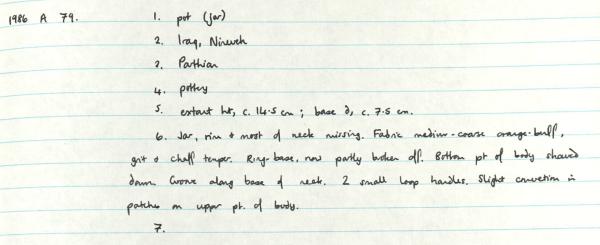 1986 A 79. 1. pot (jar)
2. Iraq, Nineveh
3. Parthian
4. pottery
5. extant ht, c. 14.5 cm ; base d, c. 7.5 cm.
6. Jar, rim & most of neck missing. Fabric medium-coarse orange-buff,
grit & chaff temper. Ring-base, now partly broken off. Bottom pt of body shaved
down. Groove along base of neck. 2 small loop handles. Slight concretion in
patches on upper pt. of body.
7.